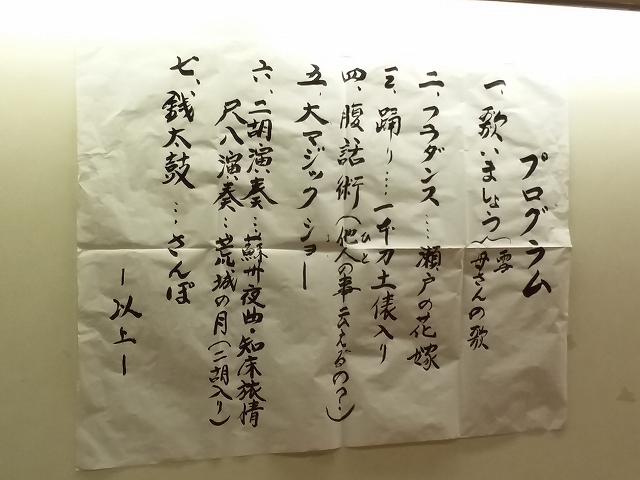 プログラム
一、歌いましょう 雪
母さんの歌
二、フラダンス…瀬戸の花嫁
三、踊り…一本刀土俵入り
四、腹話術(他人の事云えるの?)
ひと
五、大マジックショー
六、二胡演奏…蘇州夜曲・知床旅情
尺八演奏…荒城の月(二胡入り)
七、銭太鼓…さんぽ
ー以上ー